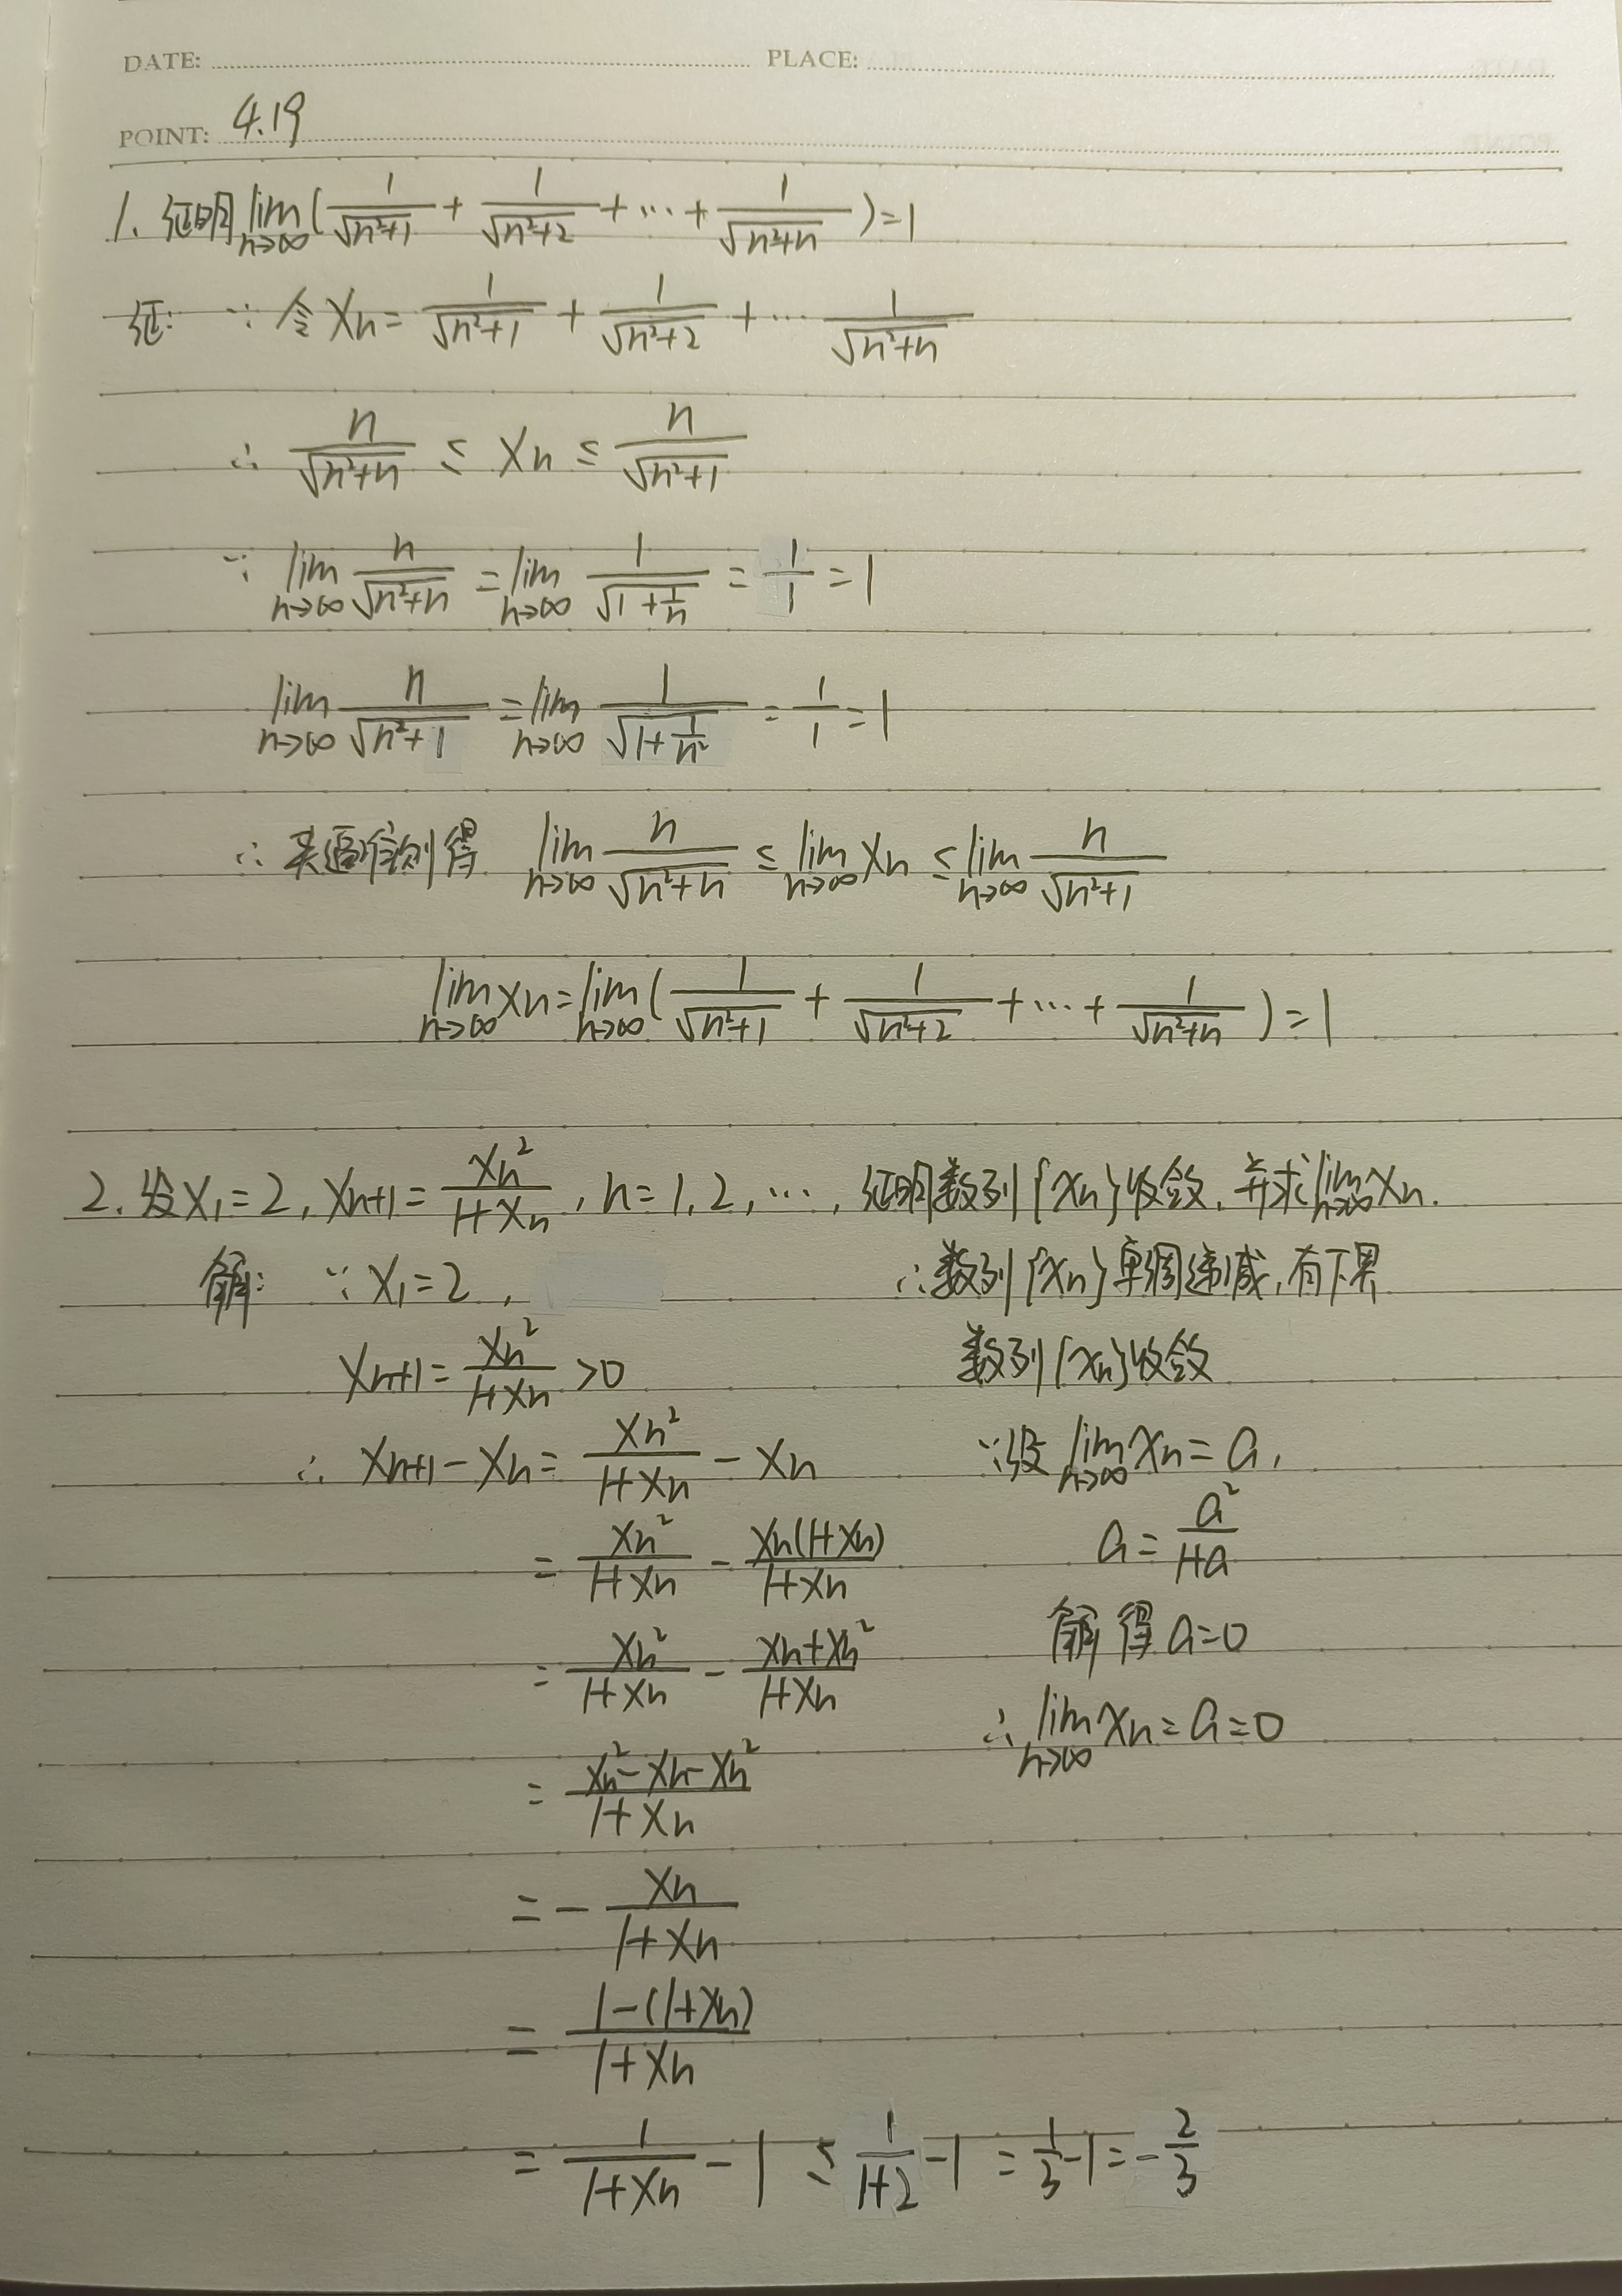 DATE: PLACE:
POINT: 4.19
1. 证明 lim_{n→∞} (1/√(n²+1) + 1/√(n²+2) + ⋯ + 1/√(n²+n)) = 1
证: ∵ 令 Xn = 1/√(n²+1) + 1/√(n²+2) + ⋯ 1/√(n²+n)
∴ n/√(n²+n) ≤ Xn ≤ n/√(n²+1)
∵ lim_{n→∞} n/√(n²+n) = lim_{n→∞} 1/√(1+1/n) = 1/1 = 1
lim_{n→∞} n/√(n²+1) = lim_{n→∞} 1/√(1+1/n²) = 1/1 = 1
∴ 夹逼准则得 lim_{n→∞} n/√(n²+n) ≤ lim_{n→∞} Xn ≤ lim_{n→∞} n/√(n²+1)
lim_{n→∞} Xn = lim_{n→∞} (1/√(n²+1) + 1/√(n²+2) + ⋯ + 1/√(n²+n)) = 1
2. 设 X₁ = 2, Xn+1 = Xn²/(1+Xn), n = 1, 2, ⋯, 证明数列{Xn}收敛, 并求 lim_{n→∞} Xn.
解: ∵ X₁ = 2,
Xn+1 = Xn²/(1+Xn) > 0
∴ Xn+1 - Xn = Xn²/(1+Xn) - Xn
= Xn²/(1+Xn) - Xn(1+Xn)/(1+Xn)
= Xn²/(1+Xn) - (Xn+Xn²)/(1+Xn)
= (Xn²-Xn-Xn²)/(1+Xn)
= - Xn/(1+Xn)
= (1-(1+Xn))/(1+Xn)
= 1/(1+Xn) - 1 ≤ 1/(1+2) - 1 = 1/3 - 1 = - 2/3
∴ 数列{Xn}单调递减, 有下界
数列{Xn}收敛
∵ 设 lim_{n→∞} Xn = a,
a = a²/(1+a)
解得 a = 0
∴ lim_{n→∞} Xn = a = 0